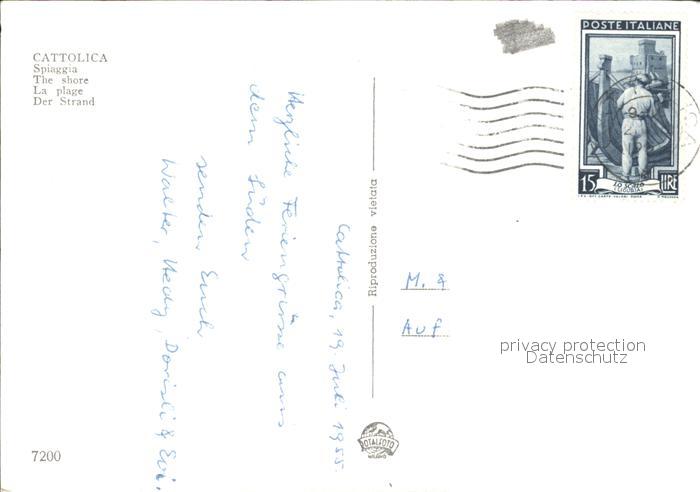 CATTOLICA
Spiaggia
The shore
La plage
Der Strand
POSTE ITALIANE
15 LIRE
Cattolica, 19. Juli 1955.
Herzliche Feriengrüsse aus
dem Süden
senden Euch
Walter, Hedy, Dorisli & Evi.
Riproduzione vietata
M. &
Auf
privacy protection
Datenschutz
TOTALFOTO
MILANO
7200